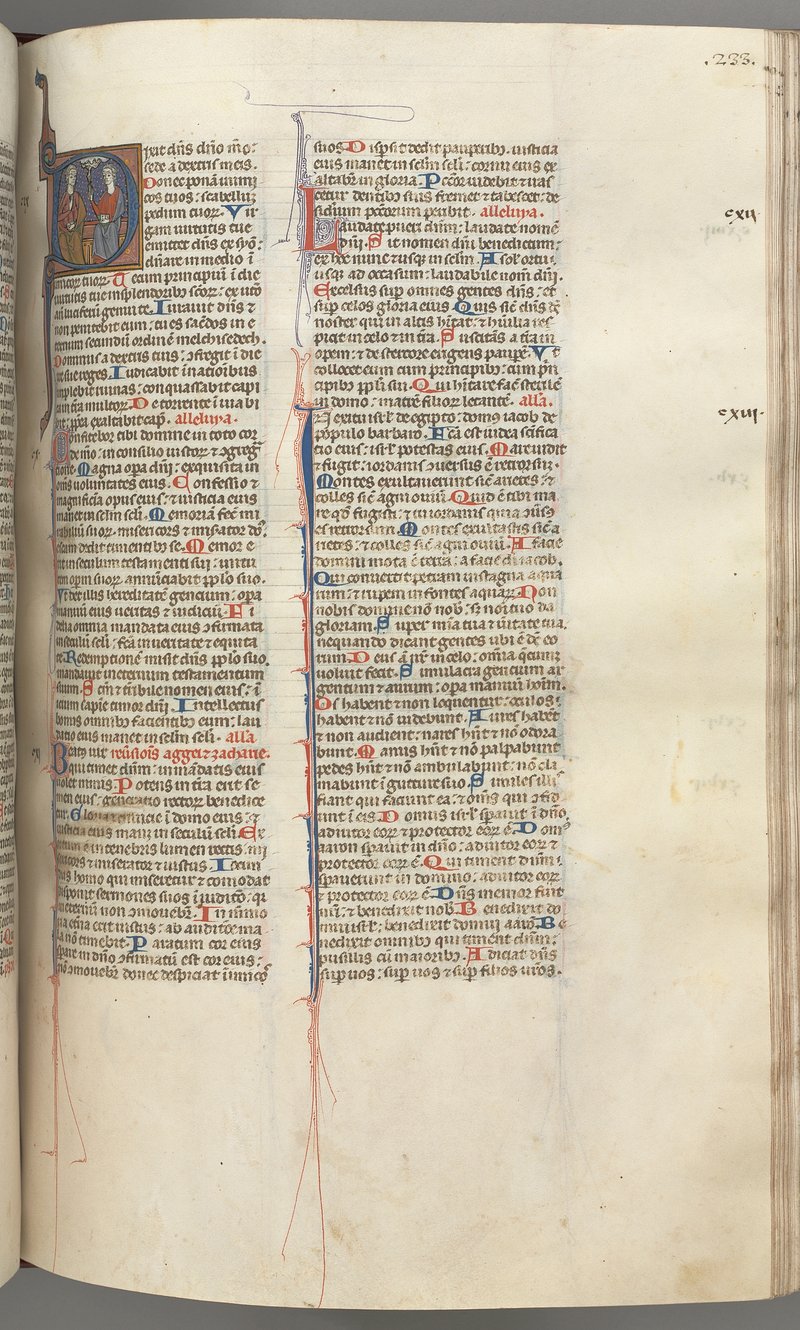 .233.
ixit dn̄s dn̄o m̄o:
sede a dextris meis.
Donec ponā inimi
cos tuos: scabellū
pedum tuoꝝ. Vir
gam uirtutis tue
emittet dn̄s ex syō:
dn̄are in medio ī
imicoꝝ tuoꝝ. Tecum principiū ī die
uirtutis tue in splendoribꝰ sc̄oꝝ: ex ut̄o
an̄ luciferū genui te. Iurauit dn̄s ⁊
non penitebit eum: tu es sac̄dos in e
ternum secundū ordinē melchisedech.
Dominus a dextris tuis: ↄfregit ī die
ire sue reges. Iudicabit ī nationibus
implebit ruinas: conquassabit capi
a in t̄ra multoꝝ. De torrente ī uia bi
bet: ꝓp̄a exaltabit cap̄. alleluya.
Confitebor tibi domine in toto cor
de m̄o: in consilio iustoꝝ ⁊ ↄg̅reg̅
tione. Magna opa dn̄i: exquisita in
om̄s uoluntates eius. Confessio ⁊
magnific̄ia opus eius: ⁊ iusticia eius
manet in sc̄lm sc̄li. Memoriā fec̄ mi
rabiliū suoꝝ. misericors ⁊ mis̄ator dn̄s:
escam dedit timentibꝰ se. Memor e
rit in seculum testamenti sui: uirtu
tem opum suoꝝ. annūciabit pp̄lo suo.
Vt det illis hereditatē gentium: opa
manuū eius ueritas ⁊ iudiciū. Fi
delia omnia mandata eius ↄfirmata
in seculū sc̄li: fc̄a in ueritate ⁊ equita
te. Redemptionē misit dn̄s pp̄lo suo.
mandauit in eternum testamentum
suum. Sc̄m ⁊ t̄ribile nomen eius: ī
icium sapiē timor dn̄i. Intellectus
bonus omnibꝰ facientibꝰ eum: lau
datio eius manet in sc̄lm sc̄li. all̄a
Beatꝰ uir reūsiois aggei ⁊ zacharie.
qui timet dn̄m: in mādatis eius
uolet nimis. Potens in t̄ra erit se
men eius: generatio rectoꝝ benedice
tur. Gloria ⁊ diuicie ī domo eius: ⁊
iusticia eius manꝫ in seculū sc̄li. Ex
ortum ē in tenebris lumen rectis: mi
sericors ⁊ miserator ⁊ iustus. Iocun
dus homo qui miseretur ⁊ comodat
disponit sermones suos ī iudicō: qꝛ
in eternū non ↄmouebit̄. In memo
ria et̄na erit iustus: ab auditōe ma
la nō timebit. Paratum cor eius
sꝑare in dn̄o ↄfirmatū est cor eius:
nō ↄmouebit̄ donec despiciat īimicos
suos. Dispsit dedit pauperibꝰ. iusticia
eius manet in sc̄lm sc̄li: cornu eius ex
altabit̄ in gloria. Pccōr uidebit ⁊ iras
cetur. dentibꝰ suis fremet ⁊ tabescet: de
siderium pccōrum peribit. alleluya.
cxii
Laudate pueri dn̄m: laudate nomē
dn̄i. Sit nomen dn̄i benedictum:
ex hoc nunc ⁊ usqꝫ in sc̄lm. A sol̄ ortu
usqꝫ ad occasum: laudabile nom̄ dn̄i.
Excelsus sup omnes gentes dn̄s: et
sup celos gloria eius. Quis sic̄ dn̄s dē
noster qui in altis hītat: ⁊ hūilia res
picit in celo ⁊ in t̄ra. Suscitās a t̄ra in
opem: ⁊ de stercore erigens paupē. Vt
collocet eum cum principibꝰ: cum pn̄
cipibꝰ pp̄li sui. Qui hītare fac̄ sterilē
in domo: matrē filioꝝ letantē. all̄a.
cxiii
In exitu isr̄l de egipto: domꝰ iacob de
populo barbaro. Fc̄a est iudea sc̄ifica
tio eius: isr̄l potestas eius. Mare uidit
⁊ fugit: iordanis ↄuersus ē retrorsū.
Montes exultauerunt sic̄ arietes: ⁊
colles sic̄ agni ouiū. Quid ē tibi ma
re qd̄ fugisti: ⁊ tu iordanis quia ↄūsꝰ
es retrorsum. Montes exultastis sic̄ a
rietes: ⁊ colles sic̄ agni ouiū. A facie
domini mota ē terra: a facie dī iacob.
Qui conuertit petram in stagna aqua
rum: ⁊ rupem in fontes aquaꝝ. Non
nobis domine nō nob̄: sꝫ noī tuo da
gloriam. Super mīa tua ⁊ ūitate tua.
nequando dicant gentes ubi ē dē eo
rum. Deus aū nr̄ in celo: omīa qcūqꝫ
uoluit fecit. Simulacra gentium ar
gentum ⁊ aurum: opa manuū hoīm.
Os habent ⁊ non loquentur: oculos
habent ⁊ nō uidebunt. Aures habēt
⁊ non audient: nares hn̄t ⁊ nō odora
bunt. Manus hn̄t ⁊ nō palpabunt
pedes hn̄t ⁊ nō ambulabunt: nō cla
mabunt ī gutture suo. Similes illis
fiant qui faciunt ea: ⁊ om̄s qui ↄfid
unt ī eis. Domus isr̄l sꝑauit ī dn̄o
adiutor eoꝝ ⁊ protector eoꝝ ē. Domꝰ
aaron sꝑauit in dn̄o: adiutor eoꝝ ⁊
protector eoꝝ ē. Qui timent dn̄m:
sꝑauerunt in domino: adiutor eoꝝ
⁊ protector eoꝝ ē. Dn̄s memor fuit
nr̄i: ⁊ benedixit nob̄. Benedixit do
mui isr̄l: benedixit domui aarō. Be
nedixit omnibꝰ qui timent dn̄m:
pusillis cū maioribꝰ. Adiciat dn̄s
sup uos: sup uos ⁊ sup filios ur̄os.